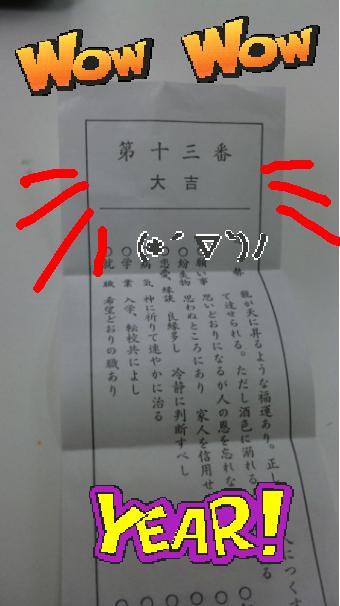 WOW WOW
第十三番
大吉
(❀´ ▽`)ﾉ
が天に昇るような福運あり。正し
につくす
て達せられる。ただし酒色に溺れる
る
願い事 思いどおりになるが人の恩を忘れな
○紛失物 思わぬところにあり 家人を信用せ
○恋愛、縁談 良縁多し 冷静に判断すべし
○病気 神に祈りて速やかに治る
○学業 入学、転校共によし
○就職 希望どおりの職あり
YEAR!